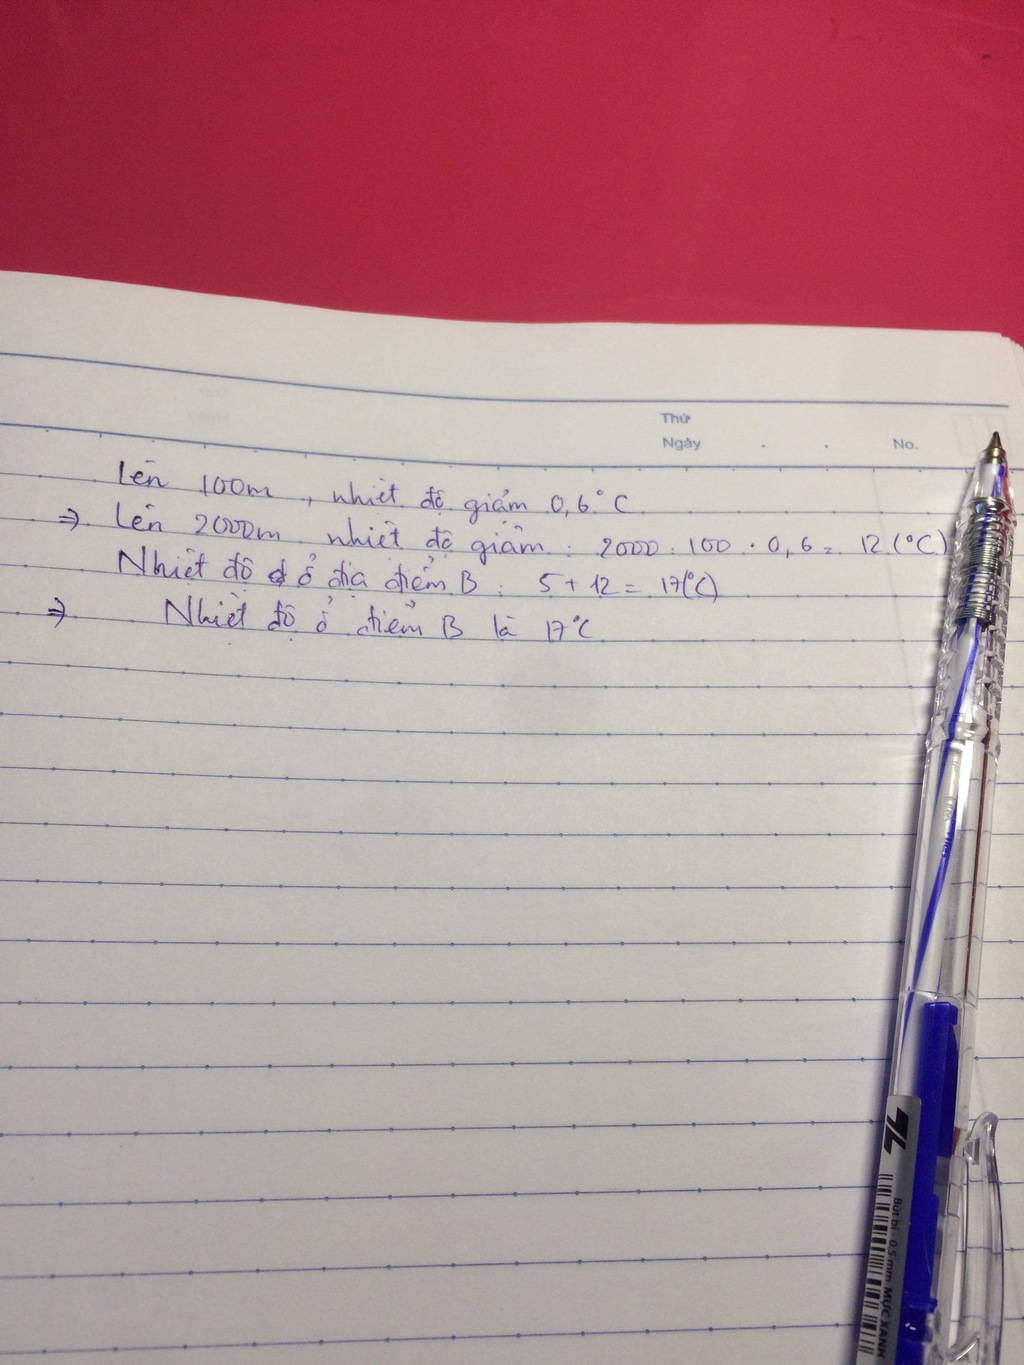 Thứ
Ngày . . No.
Lên 100m, nhiệt độ giảm 0,6°C
=> Lên 2000m nhiệt độ giảm: 2000 : 100 . 0,6 = 12 (°C)
Nhiệt độ ở địa điểm B: 5 + 12 = 17(°C)
=> Nhiệt độ ở điểm B là 17°C
TL
Bút bi - 0.5 mm MỰC XANH